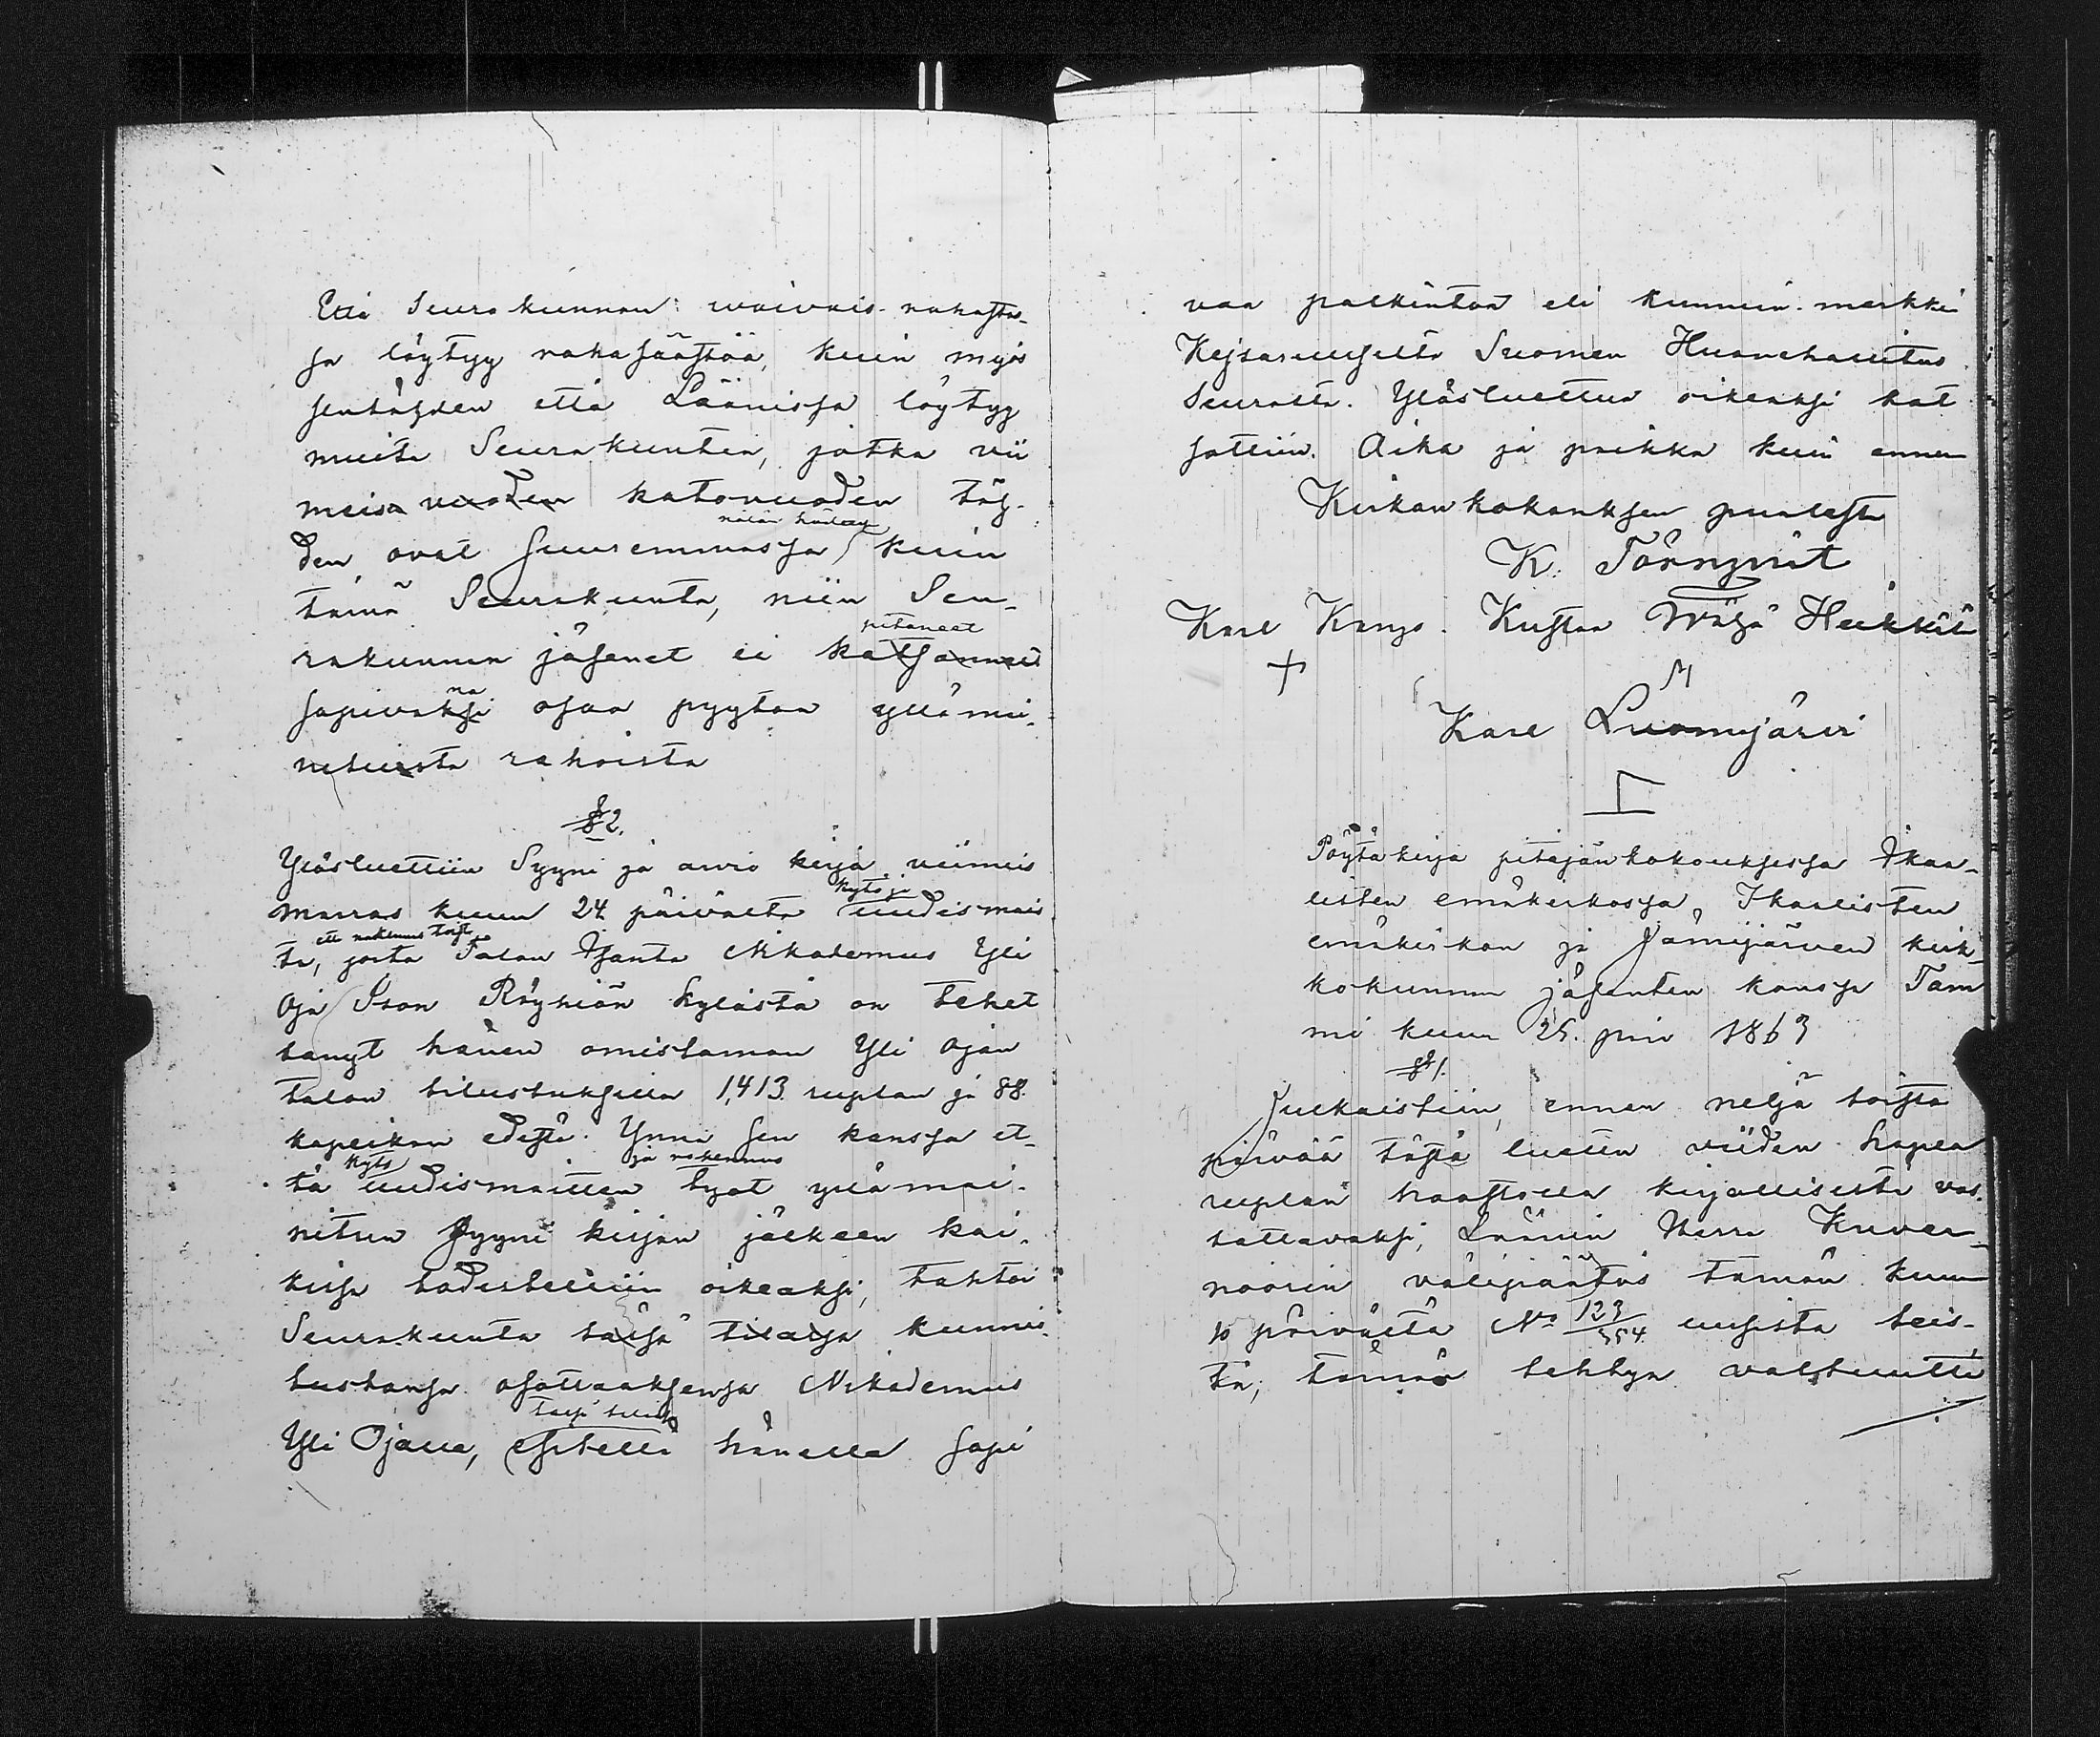 Että Seurakunnan waivais-rahastos-
sa löytyy rahasäästöä, kuin myös
sentähden että Läänissä löytyy
muita Seurakuntia, jotka vii
meisn vuoden katovuoden täh-
nälän hädässä
den, ovat suuremmassa kuin
tämä Seurakunta, niin Seu-
pitäneet
rakunnan jäsenet ei katsonneet
na
sopivaksi osaa pyytää yllä mai-
nituista rahoista
§ 2.
Ylösluettiin Syyni ja arvio kirja viimeis
kytö ja
marras kuun 24 päivältä uudismais
ett rakennus töist
ta, joita Talon Isäntä Nikodemus Yli
Oja Ison Röyhiön kylästä on tehet
tänyt hänen omistaman Yli Ojan
talon tilustuksilla 1,413 ruplan ja 88.
kopeikan edestä. Ynnä sen kanssa et-
kytö ja rakennus
tä uudismaitten työt yllä mai-
nitun syyni kirjan jälkeen kai-
kissa todistettiin oikeaksi, tahtoi
Seurakunta tässä tilassa kunnis-
tustansa osottaaksensa Nikodemus
tässä tilassa
Yli Ojalle, esitellä hänelle sopi
vaa palkintoa eli kunnia-merkkiä
Kejsarilliselta Suomen Huonehallitus
Seuralta. Ylösluettua oikeaksi kat
sottiin. Aika ja paikka kuin ennen
Kirkonkokouksen puolesta
K. Törnqvist
Karl Kango. Kustaa Wähä Heikkilä
Karl Luomijärvi
Pöytäkirja pitäjänkokouksessa Ikaa-
listen emäkirkossa, Ikaalisten
emäkirkon ja Jämijärven kirk-
kokunnan jäsenten kanssa Tam
mi kuun 25. pnä 1863
§ 1.
Julkaistiin, ennen neljä toista
päivää tästä luettu viiden hopea
ruplan haastolla kirjallisesti vas-
tattavaksi, Läänin Herra Kuver-
nöörin välipäätös tämän kuun
10 päivältä No 123/354 uusista teis-
tä; tämän tehtyä valtuutti